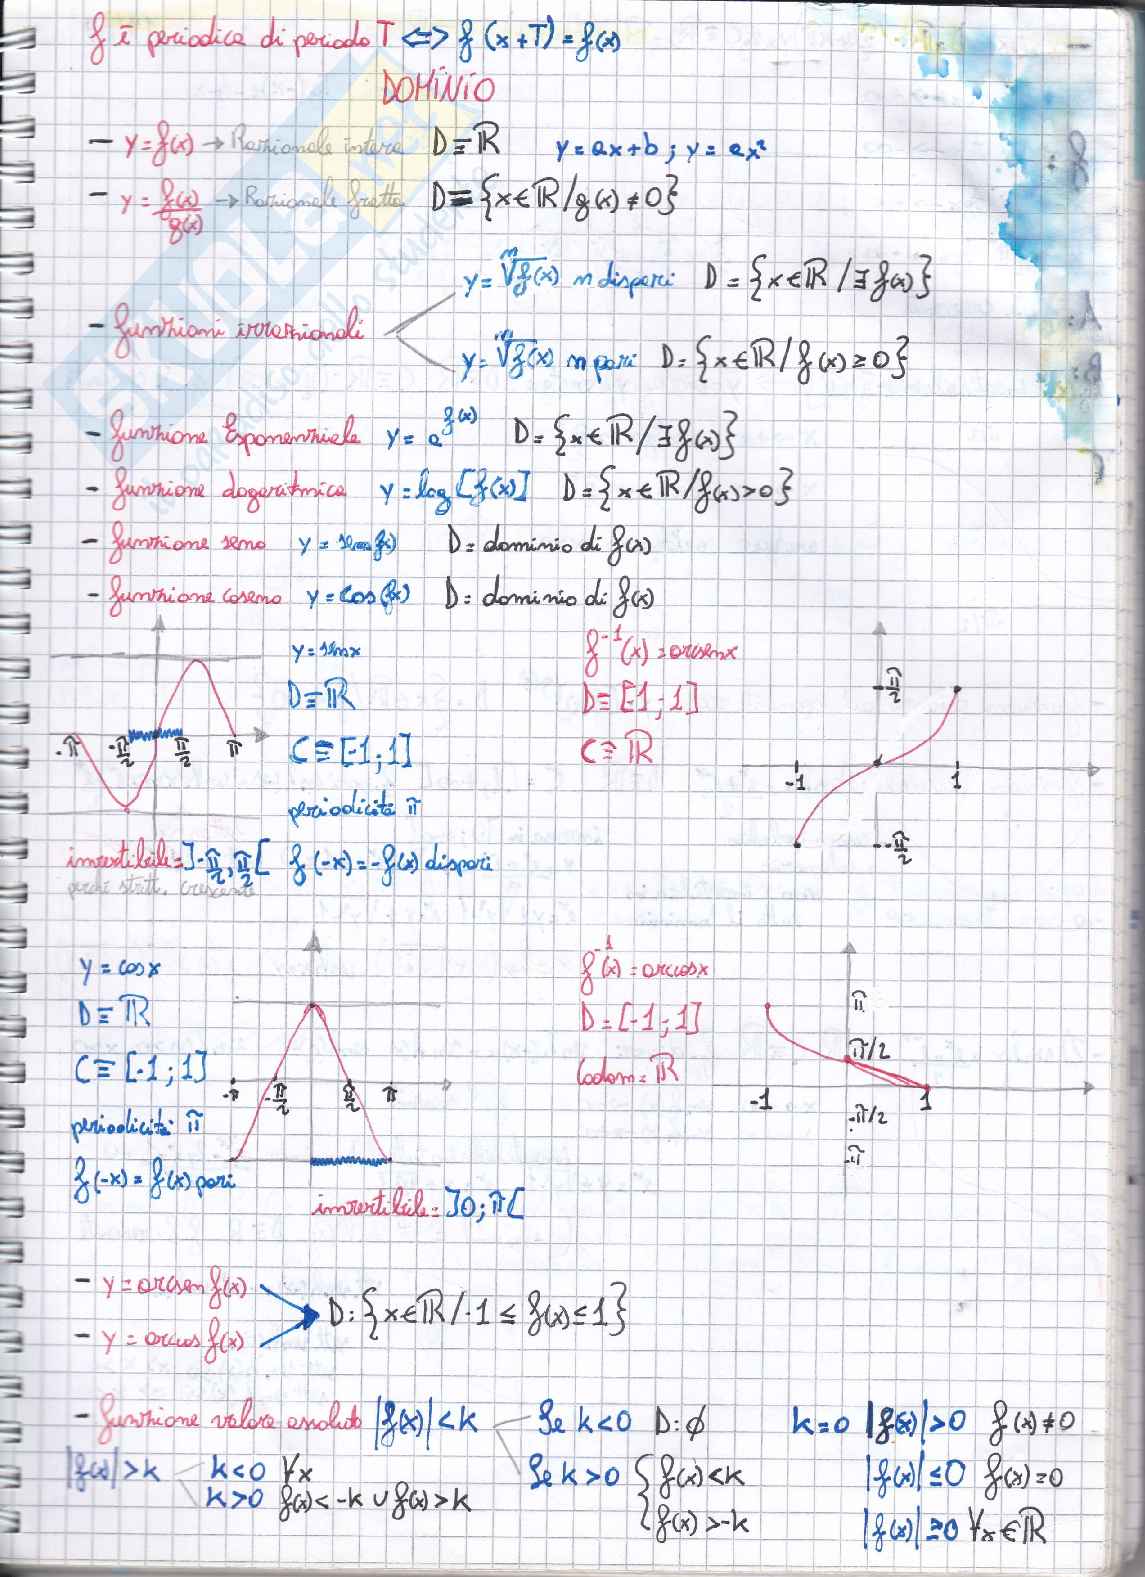 f è periodica di periodo T <=> f (x+T) = f(x)
DOMINIO
- y=f(x) → Razionale intera D≡ℝ y=ax+b ; y=ax²
- y=f(x)/g(x) → Razionale fratta D={x∈ℝ/g(x)≠0}
y=ⁿ√f(x) n dispari D={x∈ℝ/∃f(x)}
- funzioni irrazionali
y=ⁿ√f(x) n pari D={x∈ℝ/f(x)≥0}
- funzione Esponenziale y=a^f(x) D={x∈ℝ/∃f(x)}
- funzione Logaritmica y=log[f(x)] D={x∈ℝ/f(x)>0}
- funzione seno y=sen f(x) D=dominio di f(x)
- funzione coseno y=cos(fx) D=dominio di f(x)
y=senx
D≡ℝ
C≡[-1;1]
periodicità π
f(-x)=-f(x) dispari
-π -π/2 π/2 π
invertibile=]-π/2,π/2[
perché strett. crescente
f⁻¹(x)=arcsenx
D≡[-1;1]
C≡ℝ
π/2
-1 1
-π/2
y=cosx
D≡ℝ
C≡[-1;1]
periodicità π
f(-x)=f(x) pari
-π -π/2 π/2 π
invertibile=]0;π[
f⁻¹(x)=arccosx
D=[-1;1]
Codom=ℝ
π
π/2
-1 1
-π/2
-π
- y=arcsen f(x)
D:{x∈ℝ/-1≤f(x)≤1}
- y=arccos f(x)
- funzione valore assoluto |f(x)|<k Se k<0 D:∅ k=0 |f(x)|>0 f(x)≠0
|f(x)|>k k<0 ∀x Se k>0 {f(x)<k |f(x)|≤0 f(x)=0
k>0 f(x)<-k ∪ f(x)>k f(x)>-k |f(x)|≥0 ∀x∈ℝ
SKUOLA.net